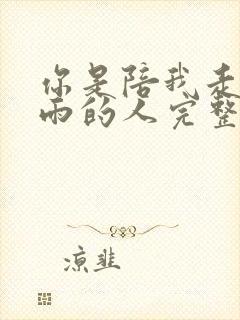 你是陪我走
雨的人完整
凉韭